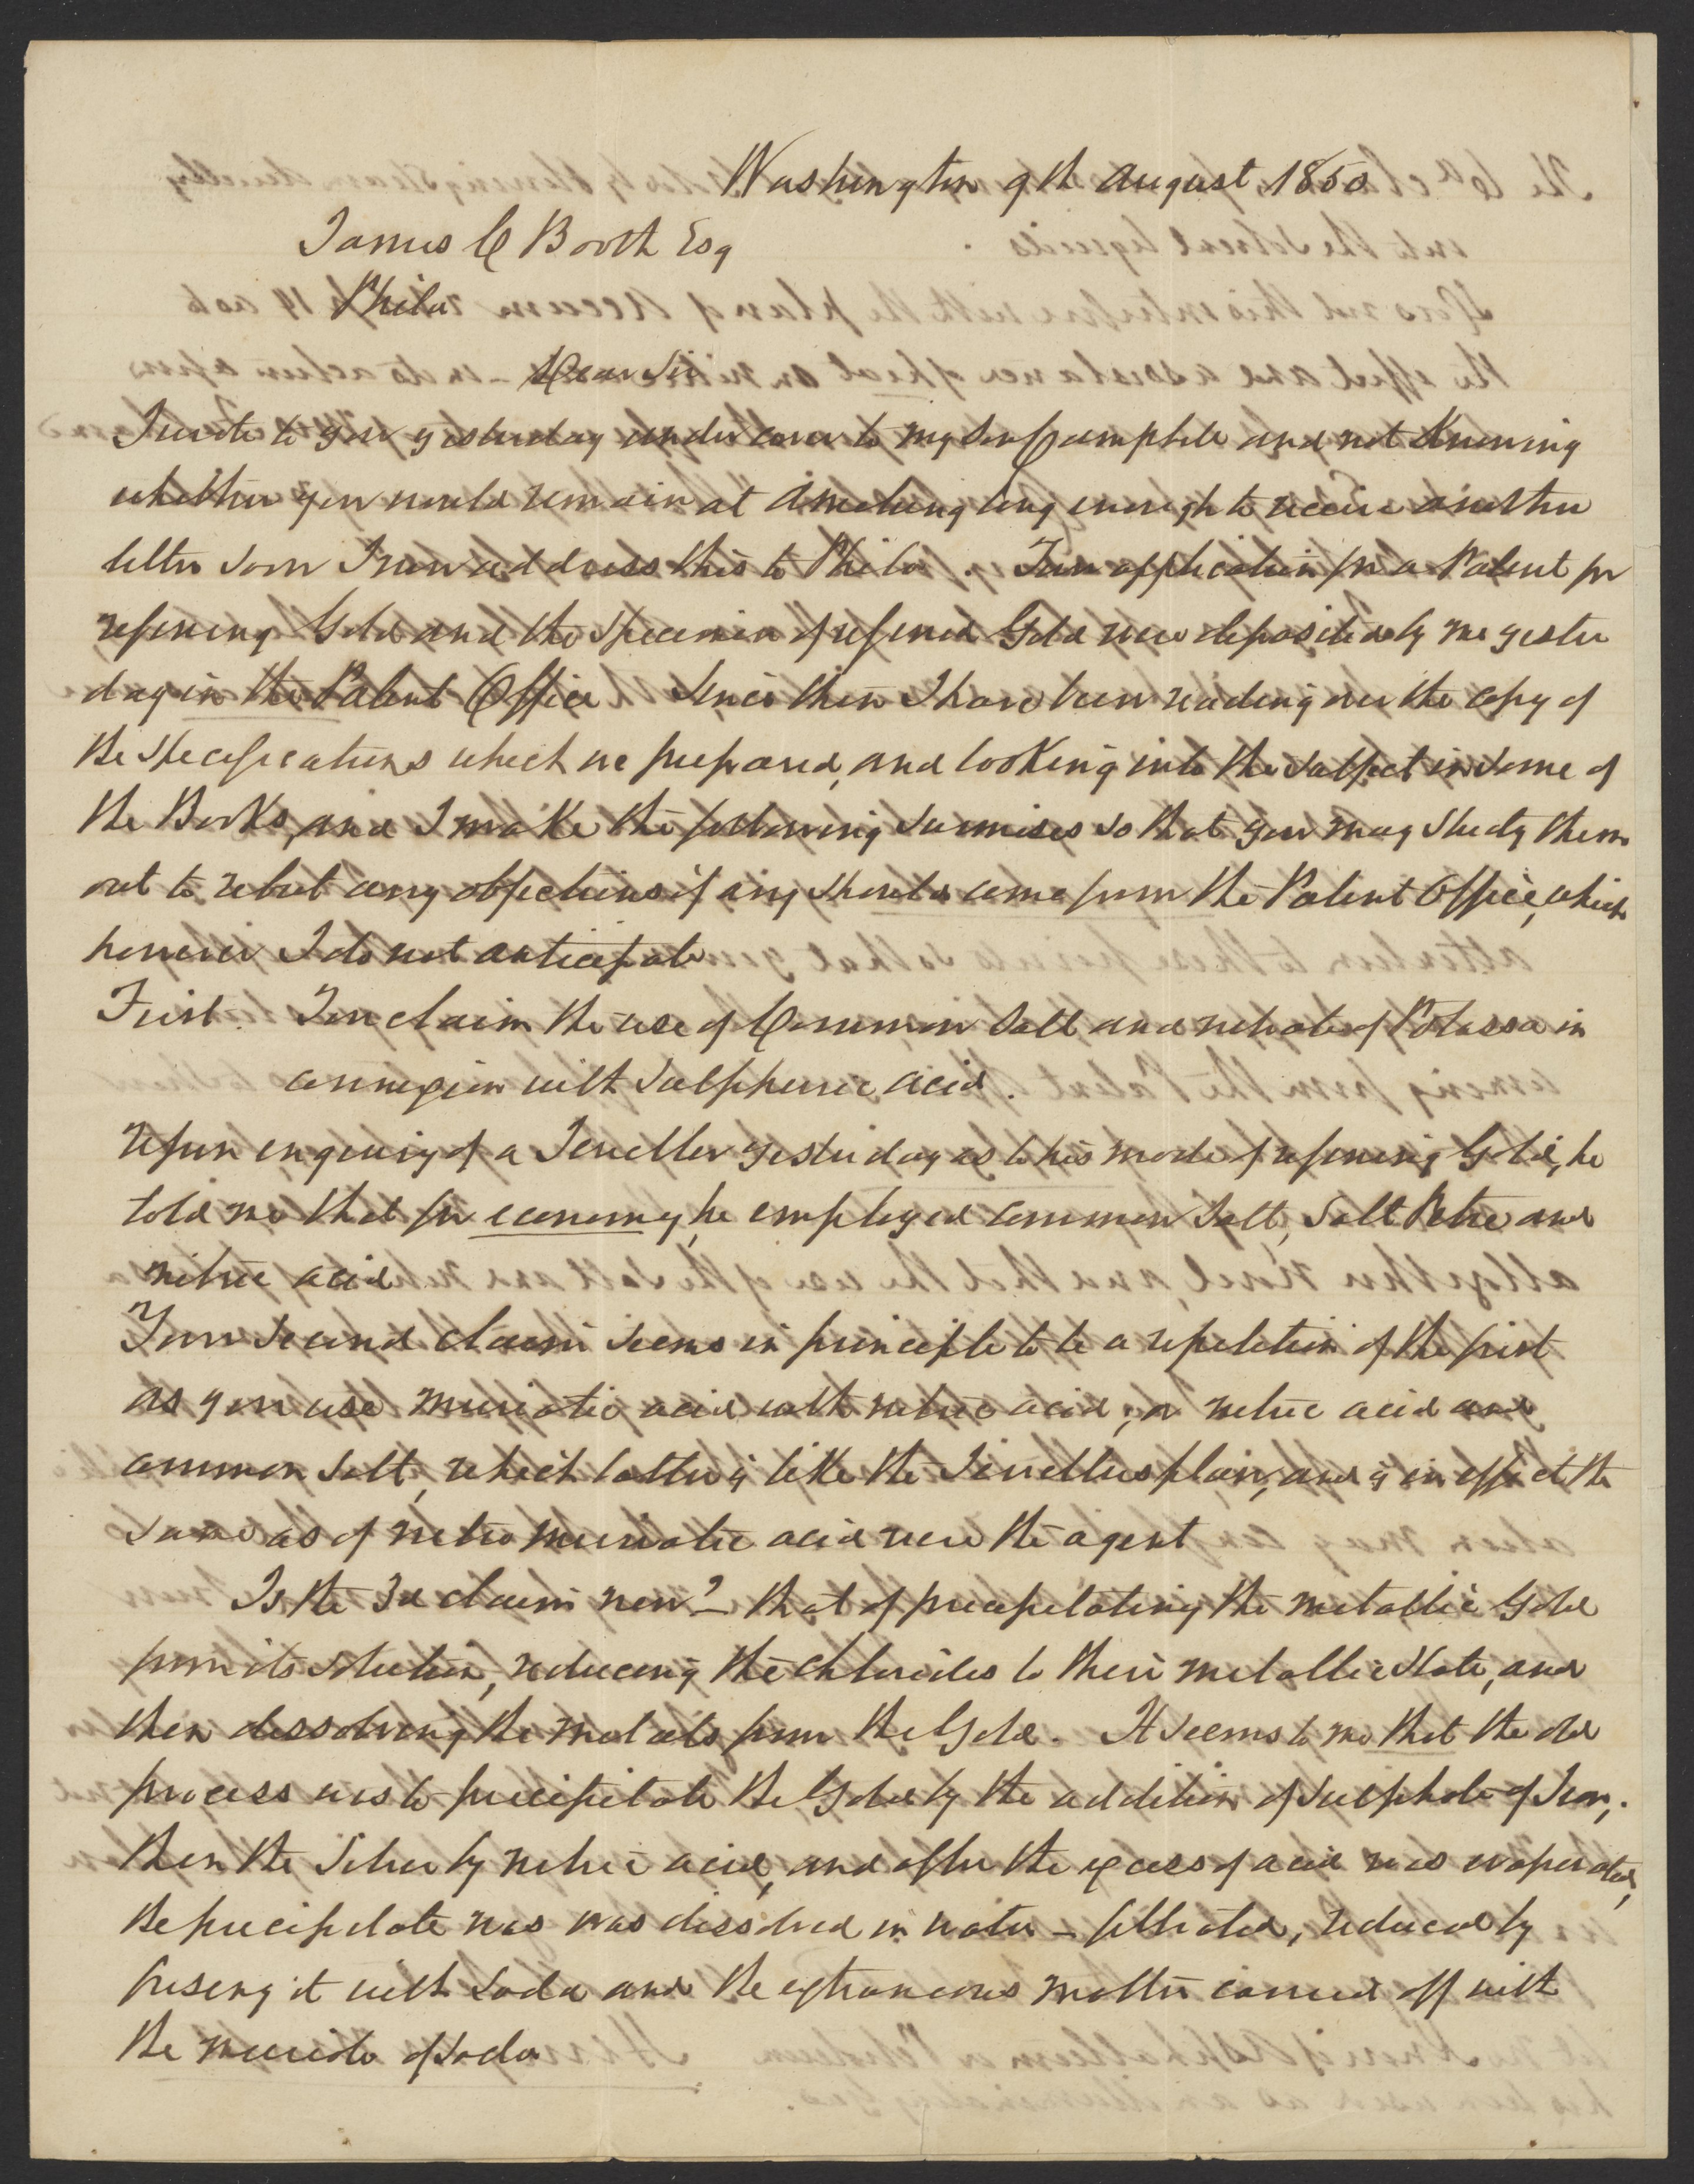 Washington 9th August 1850
James C Booth Esq
Phila
Dear Sir
I wrote to you yesterday under cover to my son Campbell and not Knowing
whether you would remain at long enough to receive another
letter from I now address this to Phila. Your application for a Patent for
refining Gold and the specimen of refined Gold were deposited by me yester
day in the Patent Office Since then I have been reading over the copy of
the specifications which we prepared, and looking into the subject in some of
the Books, and I make the following surmises so that you may study them
out to rebut any objections if any should come from the Patent Office, which
however I do not anticipate
First. You claim the use of Common Salt and nitrate of Potassa in
connexion with Sulphuric acid.
Upon enquiry of a Jeweller yesterday as to his mode of refining Gold, he
told me that for economy, he employed common Salt, Salt Petre and
nitric acid
Your second claim seems in principle to be a repetition of the first
as you use muriatic acid with nitric acid, or nitric acid and
common salt, which latter is like the Jewellers plan, and is in effect the
same as if nitro muriatic acid were the agent
Is the 3d claim new? - that of precipitating the metallic Gold
from its solution, reducing the chlorides to their metallic state, and
then dissolving the metals from the Gold. It seems to me that the old
process was to precipitate the Gold by the addition of sulphate of Iron,
then the Silver by nitric acid, and after the excess of acid was evaporated,
the precipitate was was dissolved in water - filtrated, reduced by
fusing it with Soda and the extraneous matter carried off with
the muriate of soda